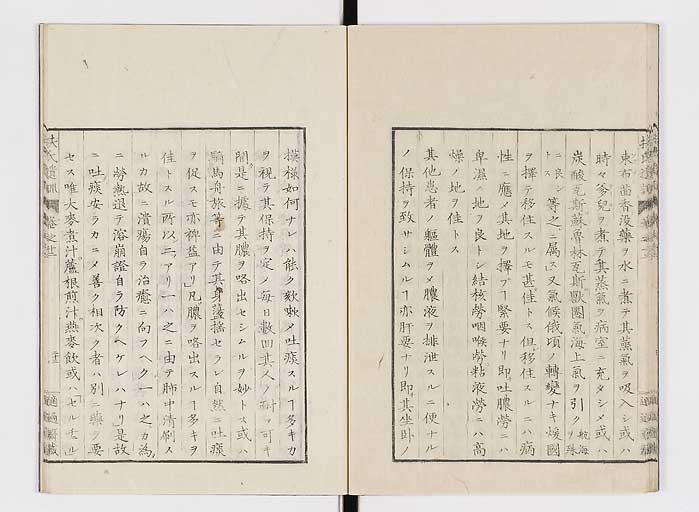 東布茴香没藥ヲ水ニ煮テ其薫氣ヲ吸入シ或ハ
時々爹兒ヲ煮テ其蒸氣ヲ病室ニ充タシメ或ハ
炭酸瓦斯蘇魯林瓦斯獸圈氣海上氣ヲ引ク航海ヲ殊
ニ良トス等之ニ属ス又氣候俄頃ノ轉變ナキ煖國
ヲ擇テ移住スルモ甚佳トス但移住スルニハ病
性ニ應メ其地ヲ擇ブヿ緊要ナリ即吐膿勞ニハ
卑濕ノ地ヲ良トシ結核勞咽喉勞粘液勞ニハ高
燥ノ地ヲ佳トス
其他患者ノ軀體ヲメ膿液ヲ排泄スルニ便ナル
ノ保持ヲ致サシムルヿ亦肝要ナリ即其坐臥ノ
摸様如何ナレハ能ク欬嗽メ吐痰スルヿ多キカ
ヲ視テ其保持ヲ定メ毎日數回其人ノ耐ヘ可キ
間是ニ據テ其膿ヲ咯出セシムルヲ妙トス或ハ
騎馬舟旅等ニ由テ其身盪揺セラレ自然ニ吐痰
ヲ促スモ亦裨益アリ凡膿ヲ咯出スルヿ多キヲ
佳トスル所以二アリ一ハ之ニ由テ肺中清刷ス
ルカ故ニ潰瘍自ラ治癒ニ向フヘク一ハ之カ為
ニ勞熱退テ溶崩證自ラ防クヘケレハナリ是故
ニ吐痰安ラカニメ善ク相次ク者ハ別ニ藥ヲ要
セス唯大麥煮汁蘆根煎汁燕麥飲或ハセルテル
扶氏遺訓 卷之十二
適適齋藏